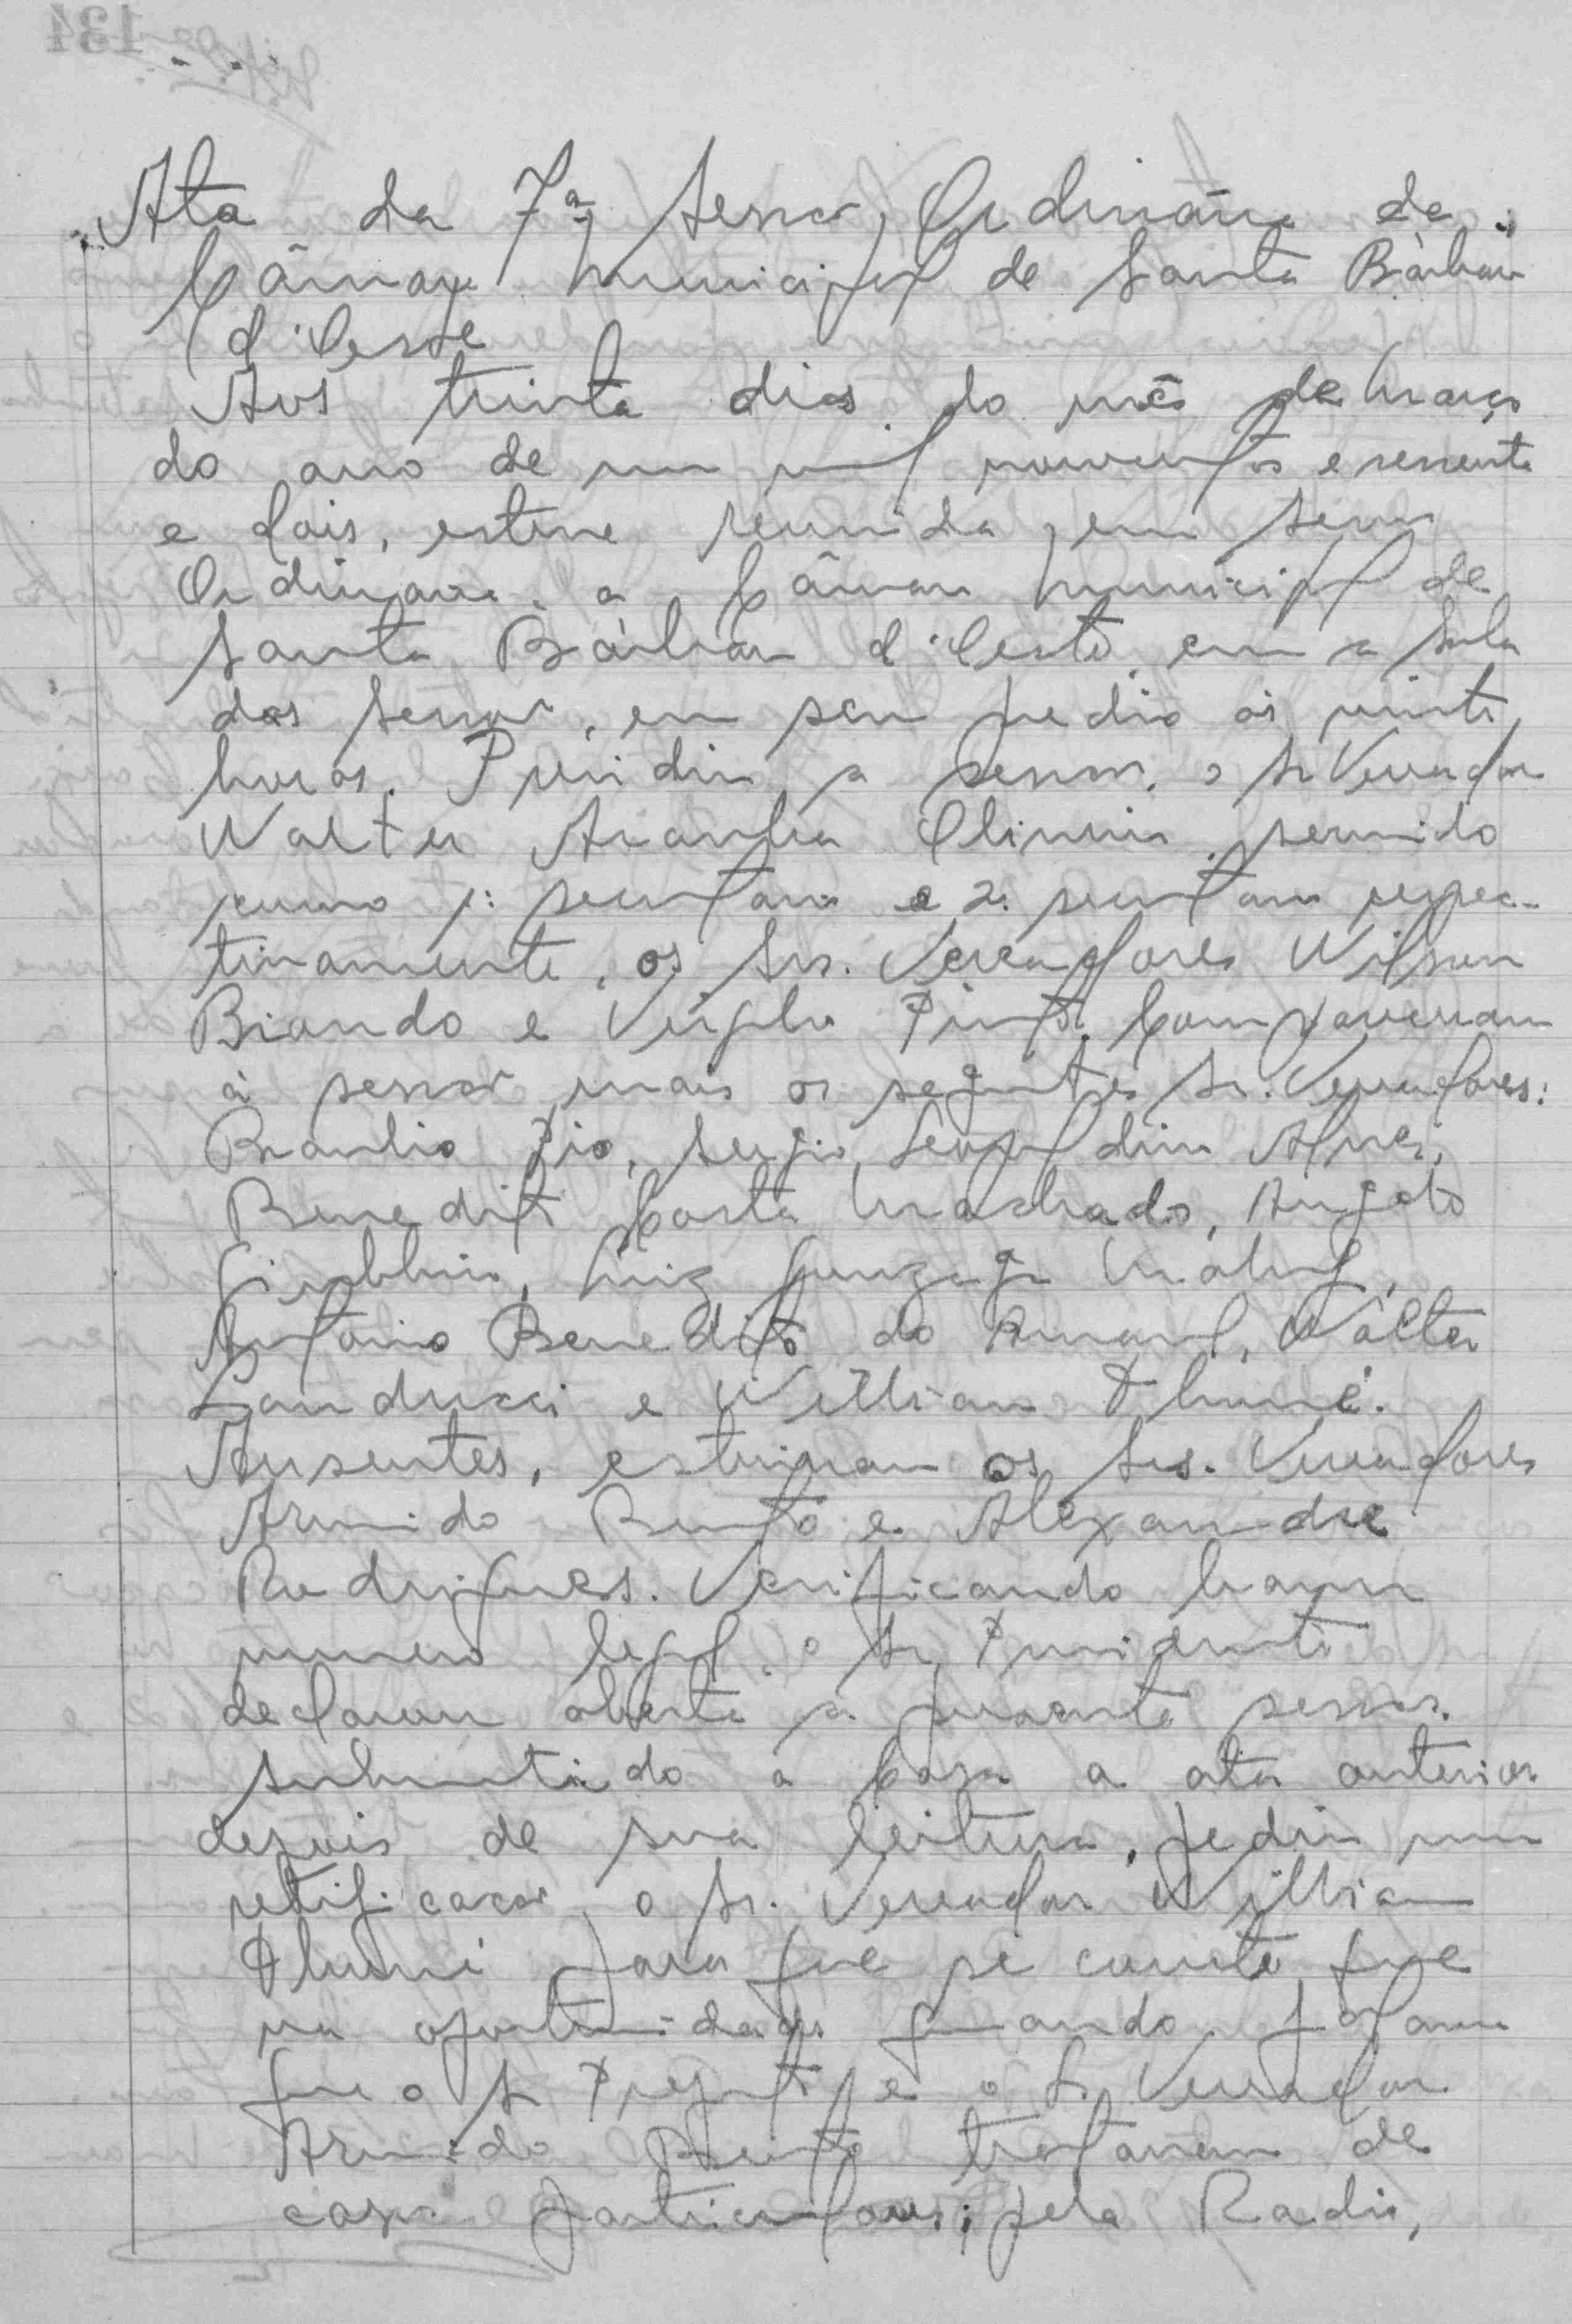 Ata da 7ª Sessão Ordinária da
Câmara Municipal de Santa Bárbara
d'Oeste
Aos trinta dias do mês de Março
do ano de um mil novecentos e sessenta
e dois, esteve reunida, em sessão
Ordinária, a Câmara Municipal de
Santa Bárbara d'Oeste, em a sala
das sessão, em seu predio ás vinte
horas. Presidiu a sessão, o Sr Vereador
Walter Aranha Oliveira, servido
como 1º secretario e 2º secretario respec-
tivamente, os Srs. Vereadores Wilson
Biondo e Virgilio Pinto. Compareceram
à sessão mais os seguintes Sr. Vereadores:
Braulio Pio, Sergio Leopoldino Alves,
Benedito Costa Machado, Angelo
Giubbina, Luiz Gonzaga
Antonio Benedito do Amaral, Walter
Landucci e Willian
Ausentes, estiveram os Srs. Vereadores
Armindo Bento e Alexandre
Rodrigues. Verificando haver
numero legal, o Sr. Presidente
declarou aberta a presente sessão.
submetido a Casa a ata anterior
depois de sua leitura, pediu uma
retificação, o Sr. Vereador Willian
para que se conste, que
na oportunidade quando falaram
que o Sr Prefeito e o Sr. Vereador
Armindo Bento trataram de
caso particulares; pela Radio,